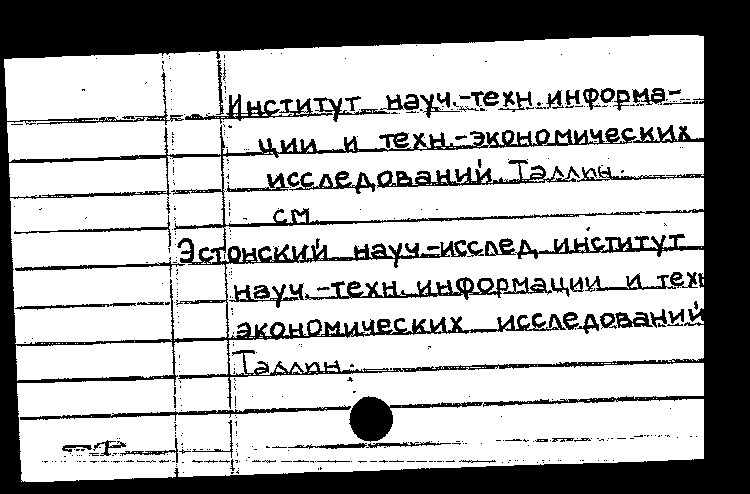 Институт науч.-техн. информа-
ции и техн.-экономических
исследований. Таллин.
см.
Эстонский науч.-исслед. институт
науч.-техн. информации и техн
экономических исследований
Таллин.